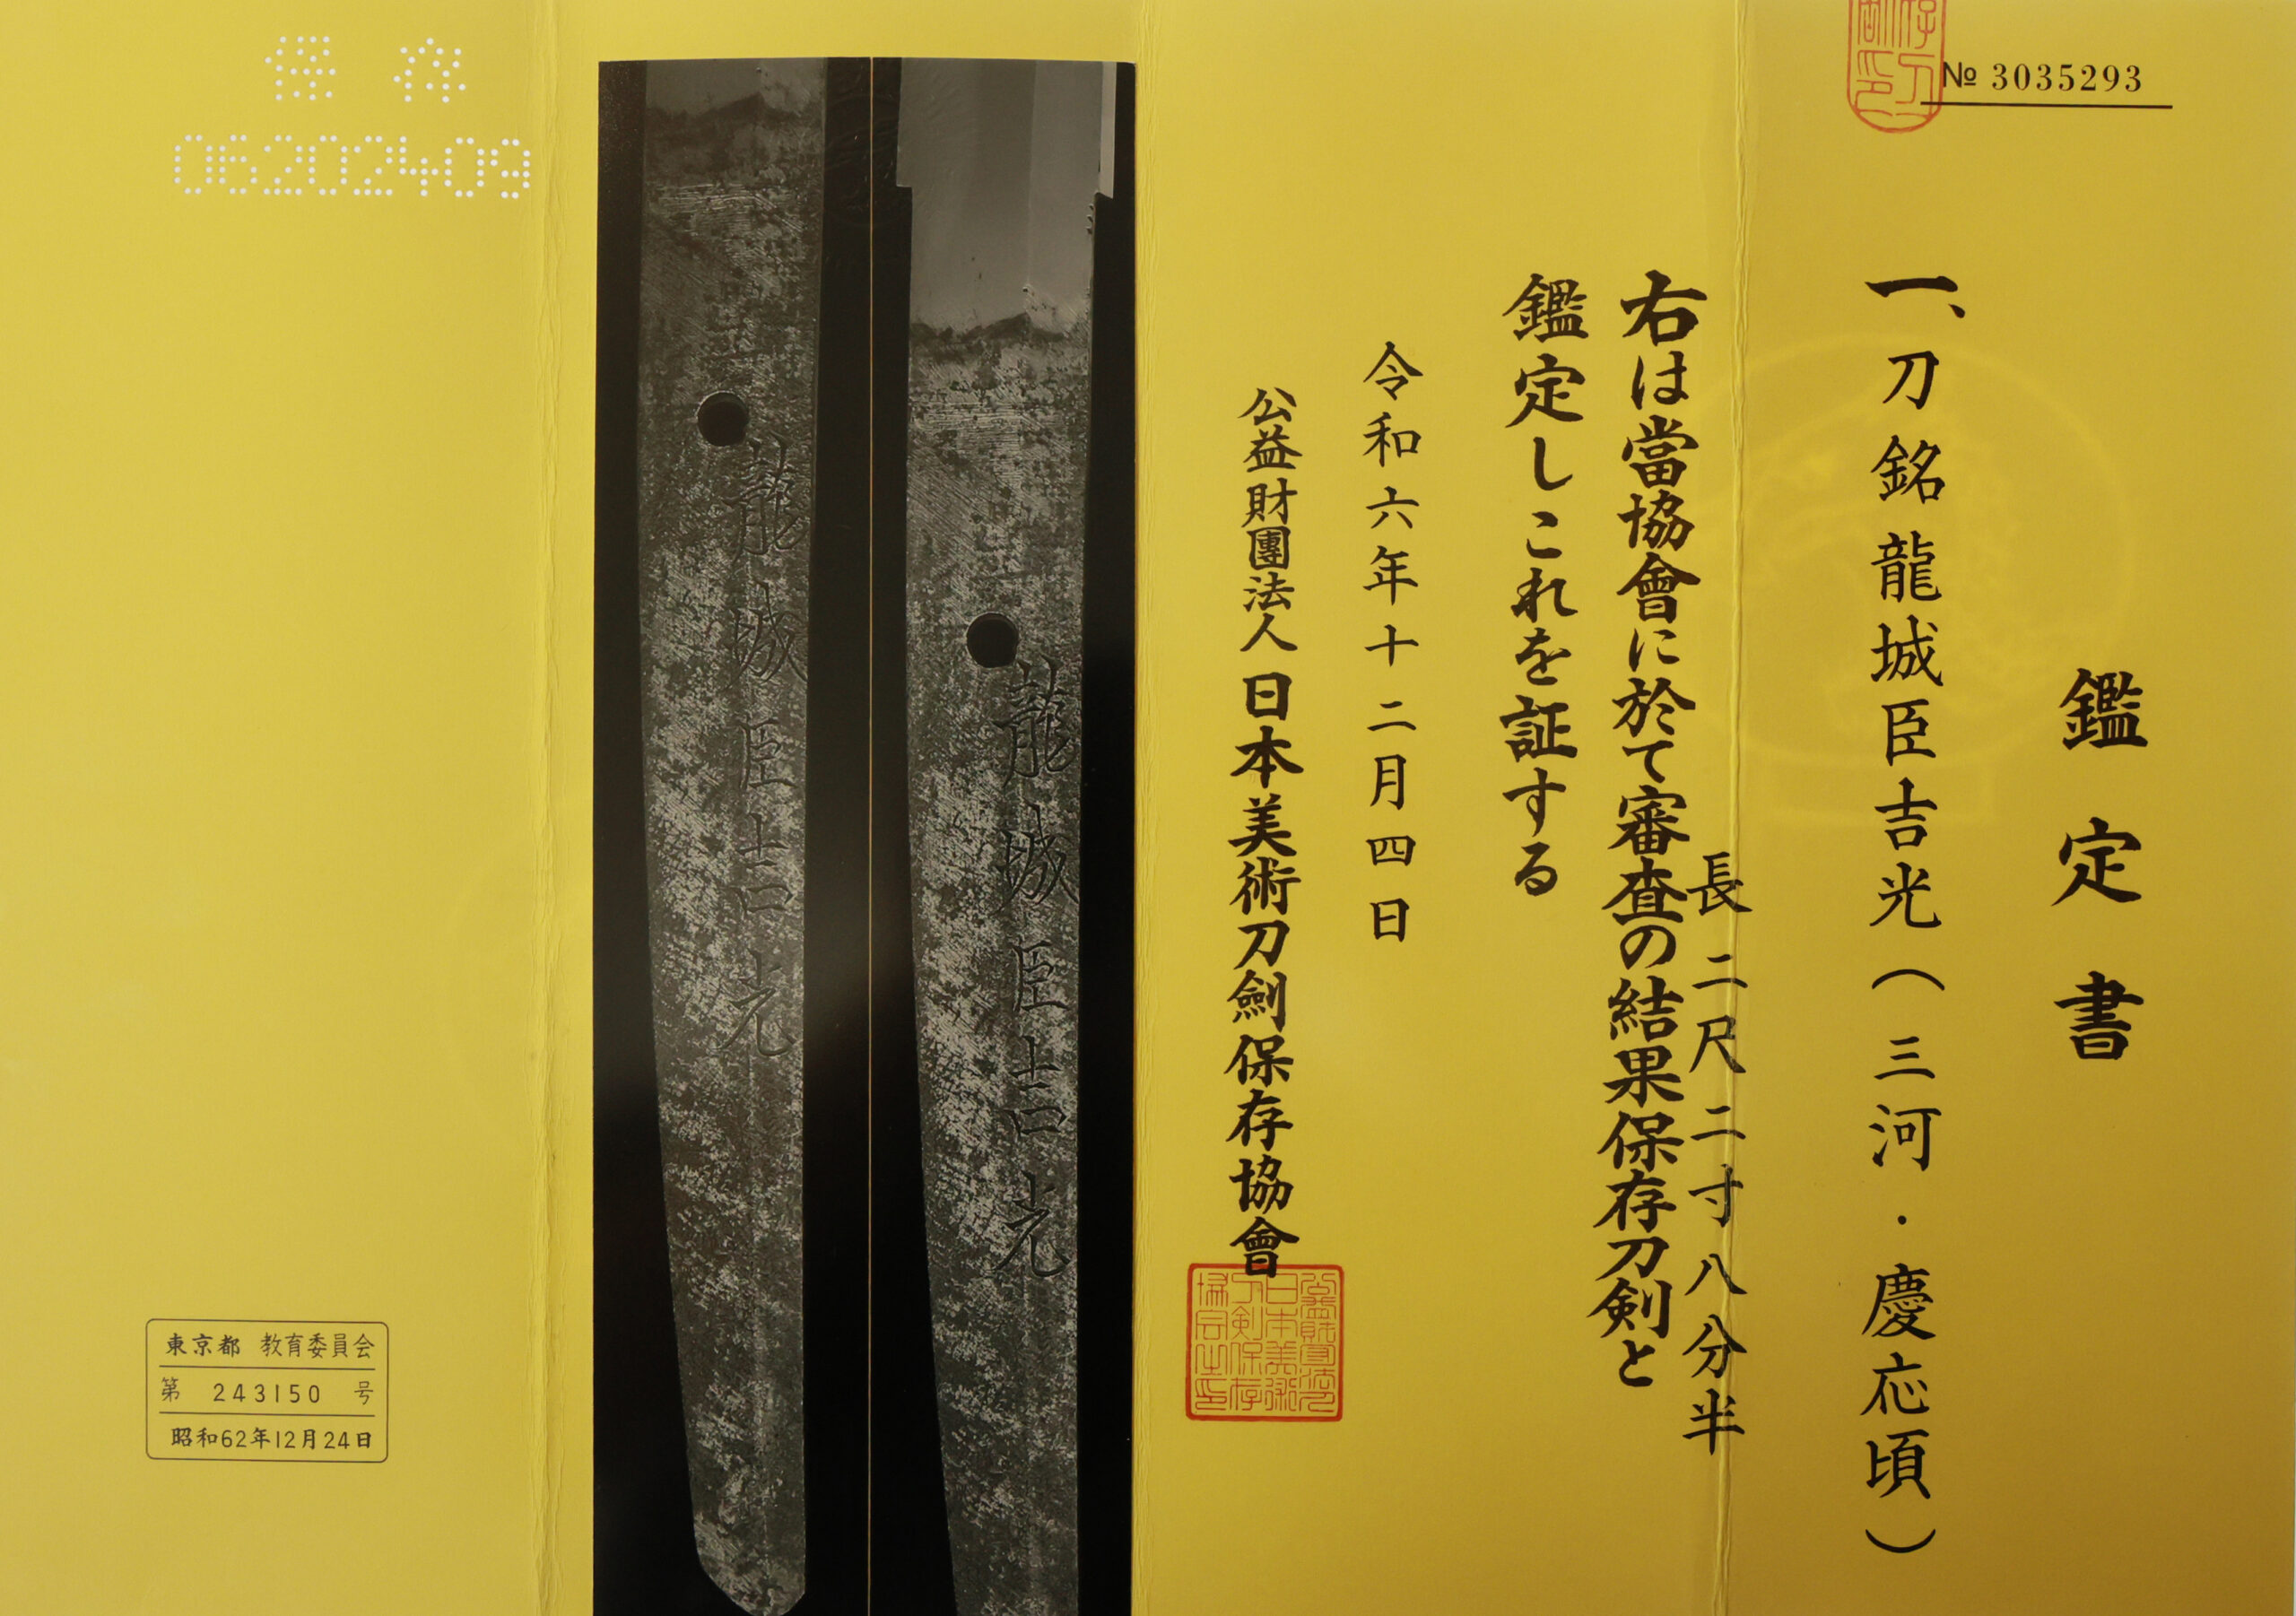 № 3035293
鑑定書
一、刀 銘 龍城臣吉光(三河・慶応頃)
長 二尺二寸八分半
右は當協會に於て審査の結果保存刀剣と
鑑定しこれを証する
令和六年十二月四日
公益財團法人 日本美術刀劍保存協會
龍城臣吉光
龍城臣吉光
保存
06202409
東京都 教育委員会
第 243150 号
昭和62年12月24日